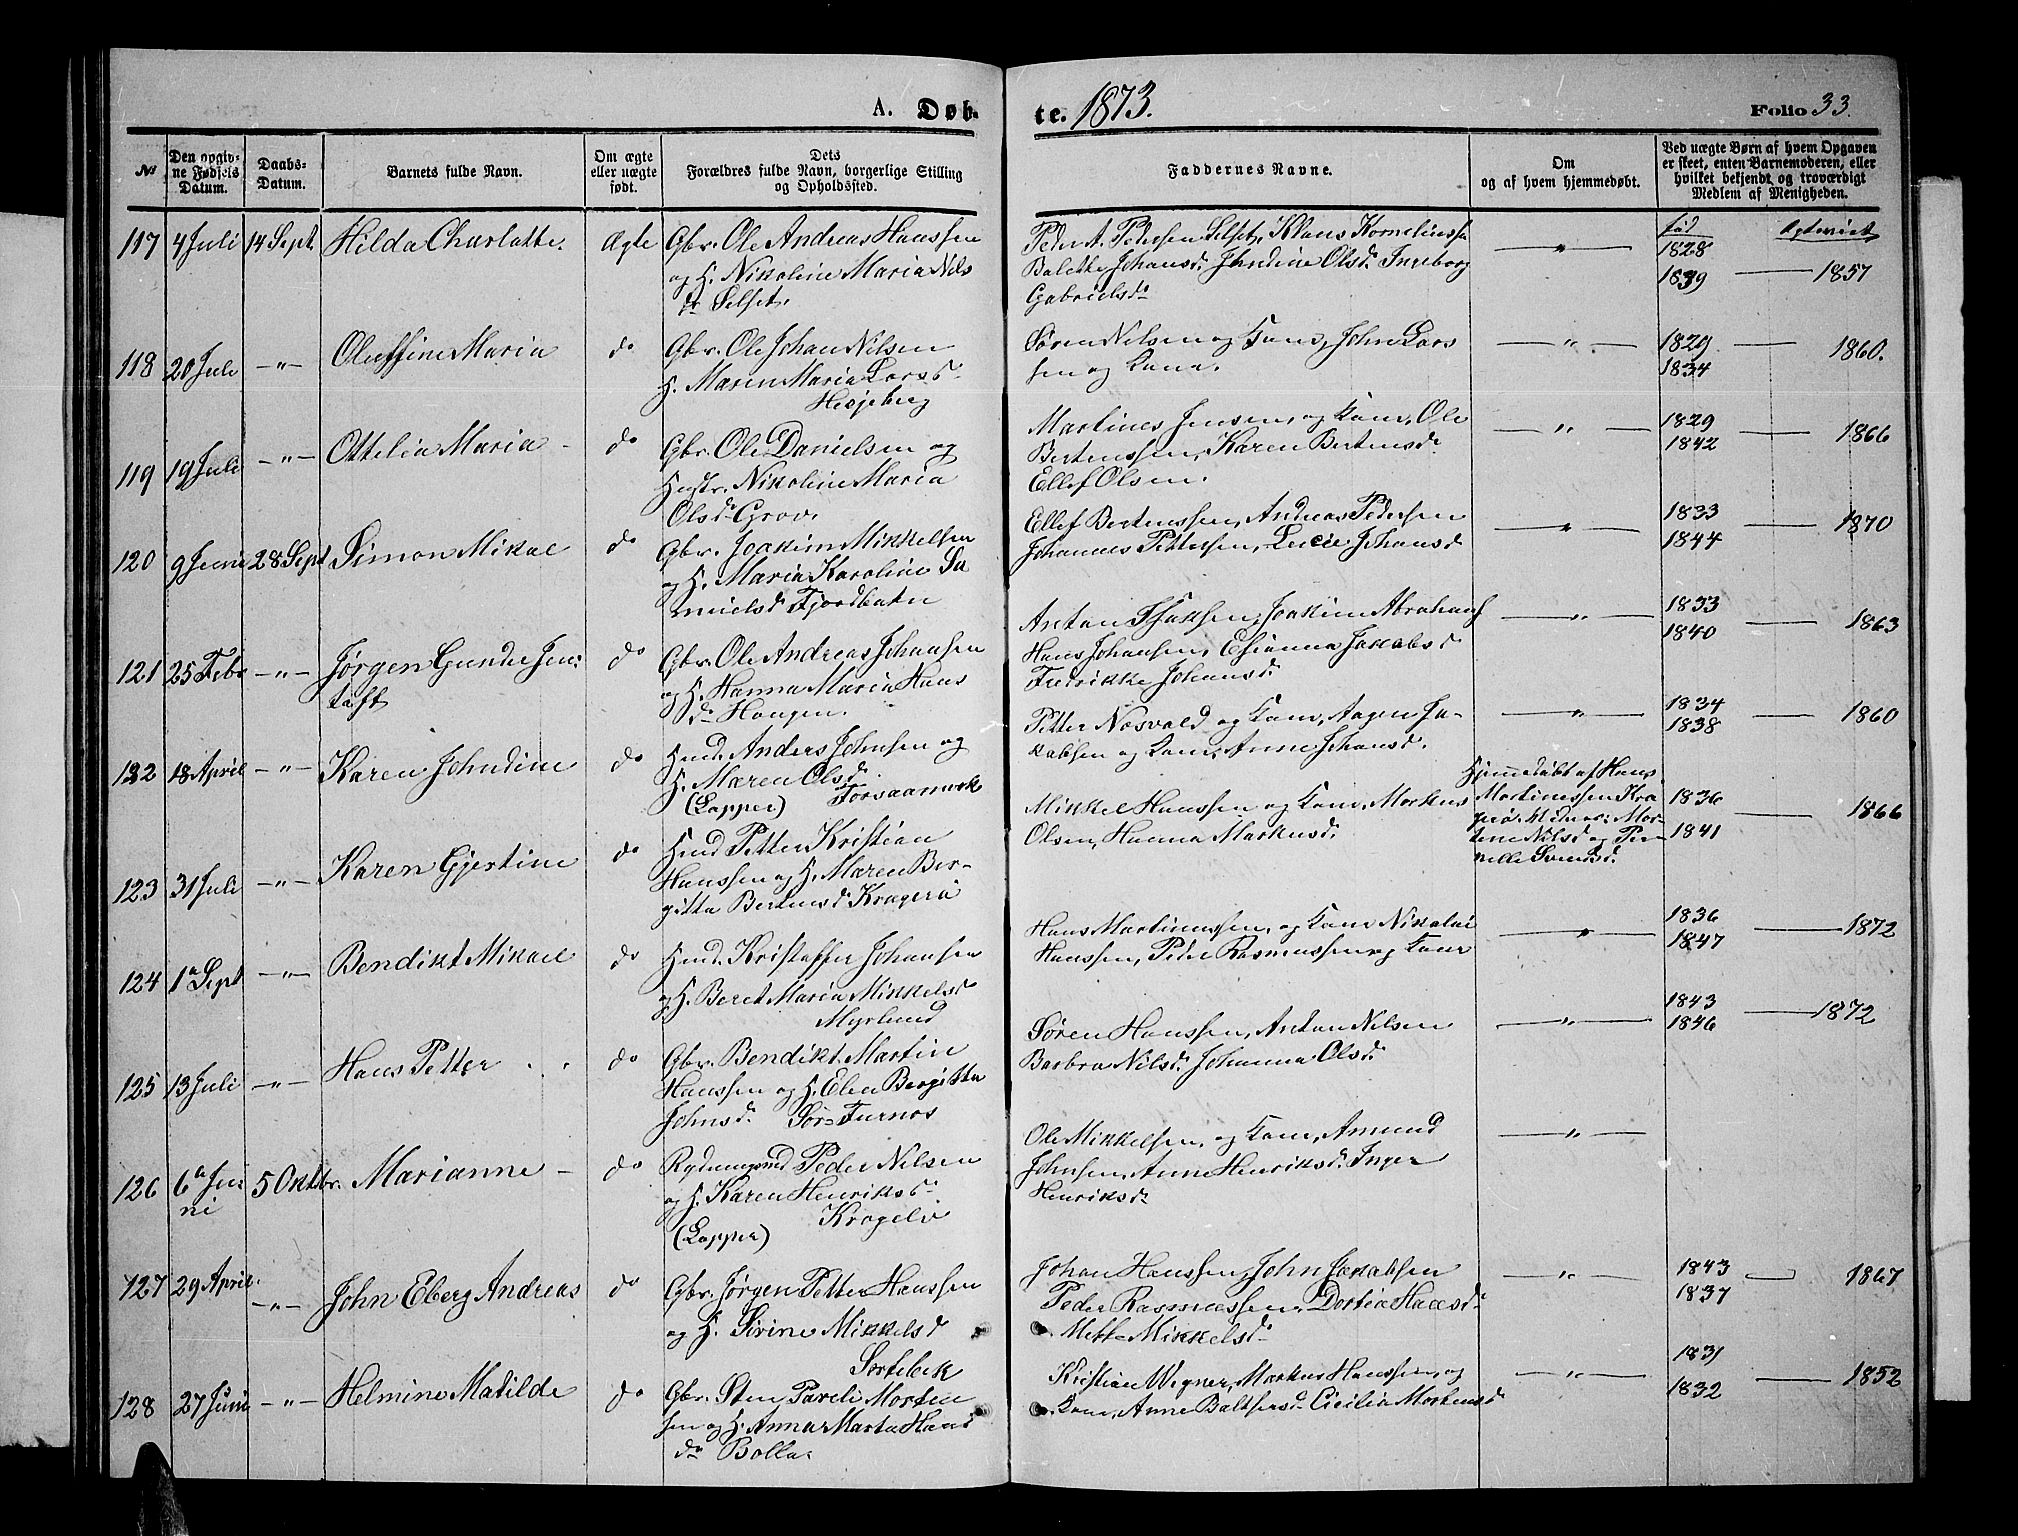 A. Døb-
te. 1873.
Folio 33.
No
Den opgiv-
ne Fødsels
Datum.
Daabs-
Datum.
Barnets fulde Navn.
Om ægte
eller uægte
født.
Dets
Forældres fulde Navn, borgerlige Stilling
og Opholdssted.
Faddernes Navne.
Om
og af hvem hjemmedøbt.
Ved uægte Børn af hvem Opgaven
er skeet, enten Barnemoderen, eller
hvilket bekjendt og troværdigt
Medlem af Menigheden.
117 4 Juli 14 Sept. Hilda Charlotte. Ægte Gbr. Ole Andreas Hanssen
og H. Nikoline Maria Nils
dr Selset.
Peder A. Pedersen Selset, Klaus Kornelius
Balette Johansd. Jhndine Olsd. Ingeborg
Gabrielsdr
født
1828
1839 — 1857
118 20 Juli -"- Oluffine Maria do Gbr. Ole Johan Nilsen
H. Maren Maria Larsd.
Hesjeberg
Søren Nilsen og Kone, John Lars
sen og Kone.
— " —
1829 — 1860.
1834
119 19 Juli -"- Ottelia Maria - do Gbr. Ole Danielsen og
Hustr. Nikoline Maria
Olsdr Grov.
Martines Jensen og Kone, Ole
Bertenssen, Karen Bertensd.
Ellef Olsen.
— " —
1829
1842 — 1866
120 9 Juni 28 Sept Simon Mikal do Gbr. Joakim Mikkelsen
og H. Maria Karoline Sa
muelsd Fjordbotn
Ellef Bertenssen, Andreas Pedersen
Johannes Pettersen, Lucie Johansd
— " —
1833
1844 — 1870
121 25 Febr -"- Jørgen Gunder Jen:
toft
do Gbr. Ole Andreas Johansen
og H. Hanna Maria Hans
dr Haugen.
Anton Isaksen, Joakim Abrahams
Hans Johansen, Esianna Jakobsd
Fredrikke Johansd.
— " —
1833
1840 — 1863
122 18 April -"- Karen Johndine do Hmd. Anders Johnsen og
H. Maren Olsd.
(Lapper) Forsaamark
Petter Nosvold og Kone, Aagen Ja-
kobsen og Kone, Anne Johansd.
— " —
1834
1838 — 1860
123 31 Juli -"- Karen Gjertine do Hmd Petter Kristian
Hanssen og H. Maren Ber-
gitta Bertensd Kragerø
Mikkel Hanssen og Kone, Markus
Olsen, Hanna Markusd.
Hjemmedøbt af Hans
Martinussen Kra
gerø. Vidner: Mor
tene Nilsd og Per-
nille Svendsd.
1836
1841 — 1866
124 1a Sept -"- Bendikt Mikael do Hmd. Kristoffer Johansen
og H. Beret Maria Mikkelsd
Myrlund
Hans Martinussen, og Kone Nikolai
Hanssen, Peder Rasmussen og Kone
— " —
1836
1847 — 1872
125 13 Juli -"- Hans Petter do Gbr. Bendikt Martin
Hanssen og H. Elen Bergitta
Johnsd. Sør-Furnes
Søren Hanssen, Anton Nilsen
Barbra Nilsd. Johanna Olsd.
— " —
1843
1846 — 1872
126 6a Ju:
ni
5 Oktbr. Marianne - do Rydningsmd Peder Nilsen
og H. Karen Henriksd.
(Lapper) Kragelv
Ole Mikkelsen, og Kone, Amund
Johnsen, Anne Henriksd. Inger
Henriksdr
— " —
127 29 April -"- John Eberg Andreas do Gbr. Jørgen Petter Hanssen
og H. Sirine Mikkelsd
Sortebek
Johan Hanssen, John Jakobsen
Peder Rasmussen, Dortea Hansd
Mette Mikkelsdr
— " —
1843 — 1867
1837
128 27 Juni -"- Helmine Matilde do Gbr. Sten Paveli Morten
sen og H. Anna Marta Hans
dr Bolla.
Kristian Wegner, Markus Hanssen, og
Kone, Anne Baltsersdr Cicilia Mortensd
— " —
1831
1832 — 1852